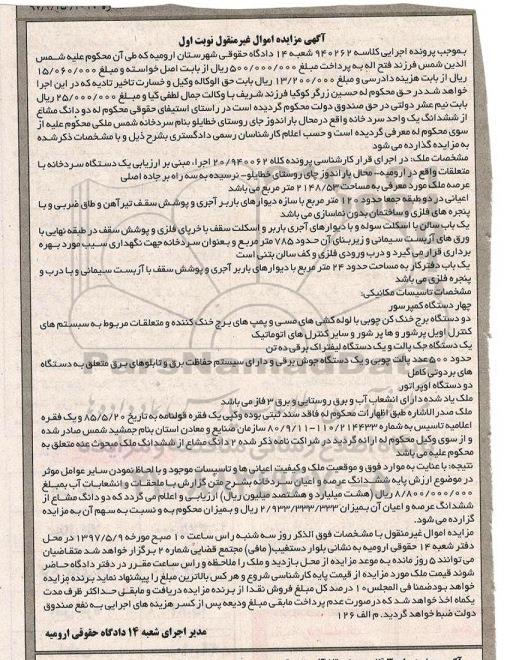 آگهی مزایده اموال غیرمنقول نوبت اول
بموجب پرونده اجرایی کلاسه ۹۴۰۲۶۲ شعبه ۱۴ دادگاه حقوقی شهرستان ارومیه که طی آن محکوم علیه شمس
الدین شمس فرزند فتح اله به پرداخت مبلغ ۵۰۰/۰۰۰/۰۰۰ ریال از بابت اصل خواسته و مبلغ ۱۵/۰۶۰/۰۰۰
ریال از بابت هزینه دادرسی و مبلغ ۱۳/۲۰۰/۰۰۰ ریال بابت حق الوکاله وکیل و خسارت تاخیر تادیه که در این اجرا
خواهد شد در حق محکوم له حسین زرگر کوکیا فرزند شریف با وکالت جمال لطفی گیا و مبلغ ۲۵/۰۰۰/۰۰۰ ریال
بابت نیم عشر دولتی در حق صندوق دولت محکوم گردیده است در راستای استیفای حقوقی محکوم له دو دانگ مشاع
از ششدانگ یک واحد سردخانه واقع در محال باراندوز جای روستای خطایلو بنام سردخانه شمس ملکی محکوم علیه از
سوی محکوم له معرفی گردیده است و حسب اعلام کارشناسان رسمی دادگستری بشرح ذیل و با مشخصات ذکرشده
به مزایده گذارده می شود
مشخصات ملک: در اجرای قرار کارشناسی پرونده کلاه ۲۰/۹۴۰۰۶۲ اجراء، مبنی بر ارزیابی یک دستگاه سردخانه با
متعلقات واقع در ارومیه- محال باراندوز چای روستای خطایلو- نرسیده به سه راه بر جاده اصلی
عرصه ملک مورد معرفی به مساحت ۲۱۴۸/۵۳ متر مربع می باشد
اعیانی در دو طبقه جمعا حدود ۱۲۰ متر مربع با سازه دیوارهای باربر آجری و پوشش سقف تیرآهن و طاق ضربی و با
پنجره های فلزی و ساختمان بدون نماسازی می باشد
یک باب سالن با اسکلت سوله و با دیوارهای آجری باربر و اسکلت سقف با خرپای فلزی و پوشش سقف در طبقه نهایی با
ورق های آزبست سیمانی و زیربنای آن حدود ۷۸۵ متر مربع و بعنوان سردخانه جهت نگهداری سیب مورد بهره
برداری قرار می گیرد و درب ورودی فلزی و کف سالن بتنی است
یک باب دفترکار به مساحت حدود ۲۴ متر مربع با دیوارهای باربر آجری و پوشش سقف با آزبست سیمانی و با درب و
پنجره فلزی می باشد
مشخصات تاسیسات مکانیکی:
چهار دستگاه کمپرسور
دو دستگاه برج خنک کن چوبی با لوله کشی های مسی و پمپ های برج خنک کننده و متعلقات مربوط به سیستم های
کنترل اویل پرشور و ها پر شور و سایر کنترل های اتوماتیک
یک دستگاه جک پالت و یک دستگاه لیفتراک برقی ده تن
حدود ۵۰۰ عدد پالت چوبی و یک دستگاه جوش برقی و دارای سیستم حفاظت برق و تابلوهای برق متعلق به دستگاه
های بردوتی کامل
دو دستگاه اوپراتور
ملک یاد شده دارای انشعاب آب و برق روستایی و برق ۳ فاز می باشد
ملک صدرالاشاره طبق اظهارات محکوم له فاقد سند ثبتی بوده وکپی یک فقره قولنامه به تاریخ ۸۵/۵/۲۰ و یک فقره
اعلامیه تاسیس به شماره ۱۱۰/۲۱۴۴۳۳-۸۰/۹/۱۱ سازمان صنایع و معادن استان بنام جمشید شمس صادر شده
و از سوی وکیل محکوم له ارائه گردید در شراکت نامه ذکر شده ۲ دانگ مشاع از ششدانگ ملک مبحوث عنه متعلق به
محکوم علیه می باشد
نتیجه: با عنایت به موارد فوق و موقعیت ملک و کیفیت اعیانی ها و تاسیسات موجود و با لحاظ نمودن سایر عوامل موثر
در موضوع ارزش پایه ششدانگ عرصه و اعیان سردخانه بشرح متن گزارش با ملحقات و انشعابات آب بمبلغ
۸/۸۰۰/۰۰۰/۰۰۰ ریال (هشت میلیارد و هشتصد میلیون ریال) ارزیابی و اعلام می گردد که دو دانگ مشاع از
ششدانگ عرصه و اعیان آن بمیزان ۲/۹۳۳/۳۳۳/۳۳۳ ریال و بمیزان محکوم به و نسبت به سهم آن به مزایده
گزارده می شود.
مزایده اموال غیرمنقول با مشخصات فوق الذکر روز سه شنبه راس ساعت ۱۰ صبح مورخه ۱۳۹۷/۵/۹ در محل
دفتر شعبه ۱۴ حقوقی ارومیه به نشانی بلوار دستغیب( مافی) مجتمع قضایی شماره ۲ برگزار خواهد شد متقاضیان
می توانند ۵ روز مانده به موعد مزایده از محل بازدید و ملک را ملاحظه و راس ساعت مقرر در دفتر دادگاه حاضر
شوند قیمت ملک مورد مزایده از قیمت پایه کارشناسی شروع و هرکس بالاترین مبلغ را پیشنهاد نماید برنده مزایده
خواهد بود ضمنا فی المجلس ۱۰ درصد کل مبلغ فروش نقدا از برنده مزایده دریافت و مابقی حداکثر ظرف مدت
یکماه اخذ خواهد شد که درصورت عدم پرداخت مابقی مبلغ ودیعه پس از کسر هزینه های اجرایی به نفع صندوق
دولت ضبط خواهد گردید. م الف ۱۲۶
مدیر اجرای شعبه ۱۴ دادگاه حقوقی ارومیه